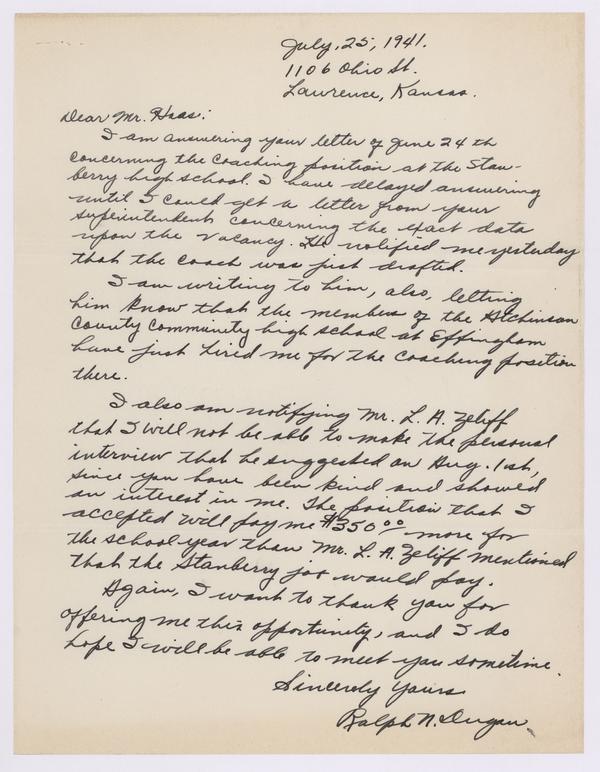 July, 25, 1941.
1106 Ohio St.
Lawrence, Kansas.
Dear Mr. Haas:
I am answering your letter of June 24 th
concerning the coaching position at the Stan-
berry high school. I have delayed answering
until I could get a letter from your
superintendent concerning the exact data
upon the vacancy. He notified me yesterday
that the coach was just drafted.
I am writing to him, also, letting
him know that the members of the Atchinson
County Community high school at Effingham
have just hired me for the coaching position
there.
I also am notifying Mr. L. A. Zeliff
that I will not be able to make the personal
interview that he suggested on Aug. 1st,
since you have been kind and showed
an interest in me. The position that I
accepted will pay me $350.00 more for
the school year than Mr. L. A. Zeliff mentioned
that the Stanberry job would pay.
Again, I want to thank you for
offering me this opportunity, and I do
hope I will be able to meet you sometime.
Sincerely Yours
Ralph N. Dugan